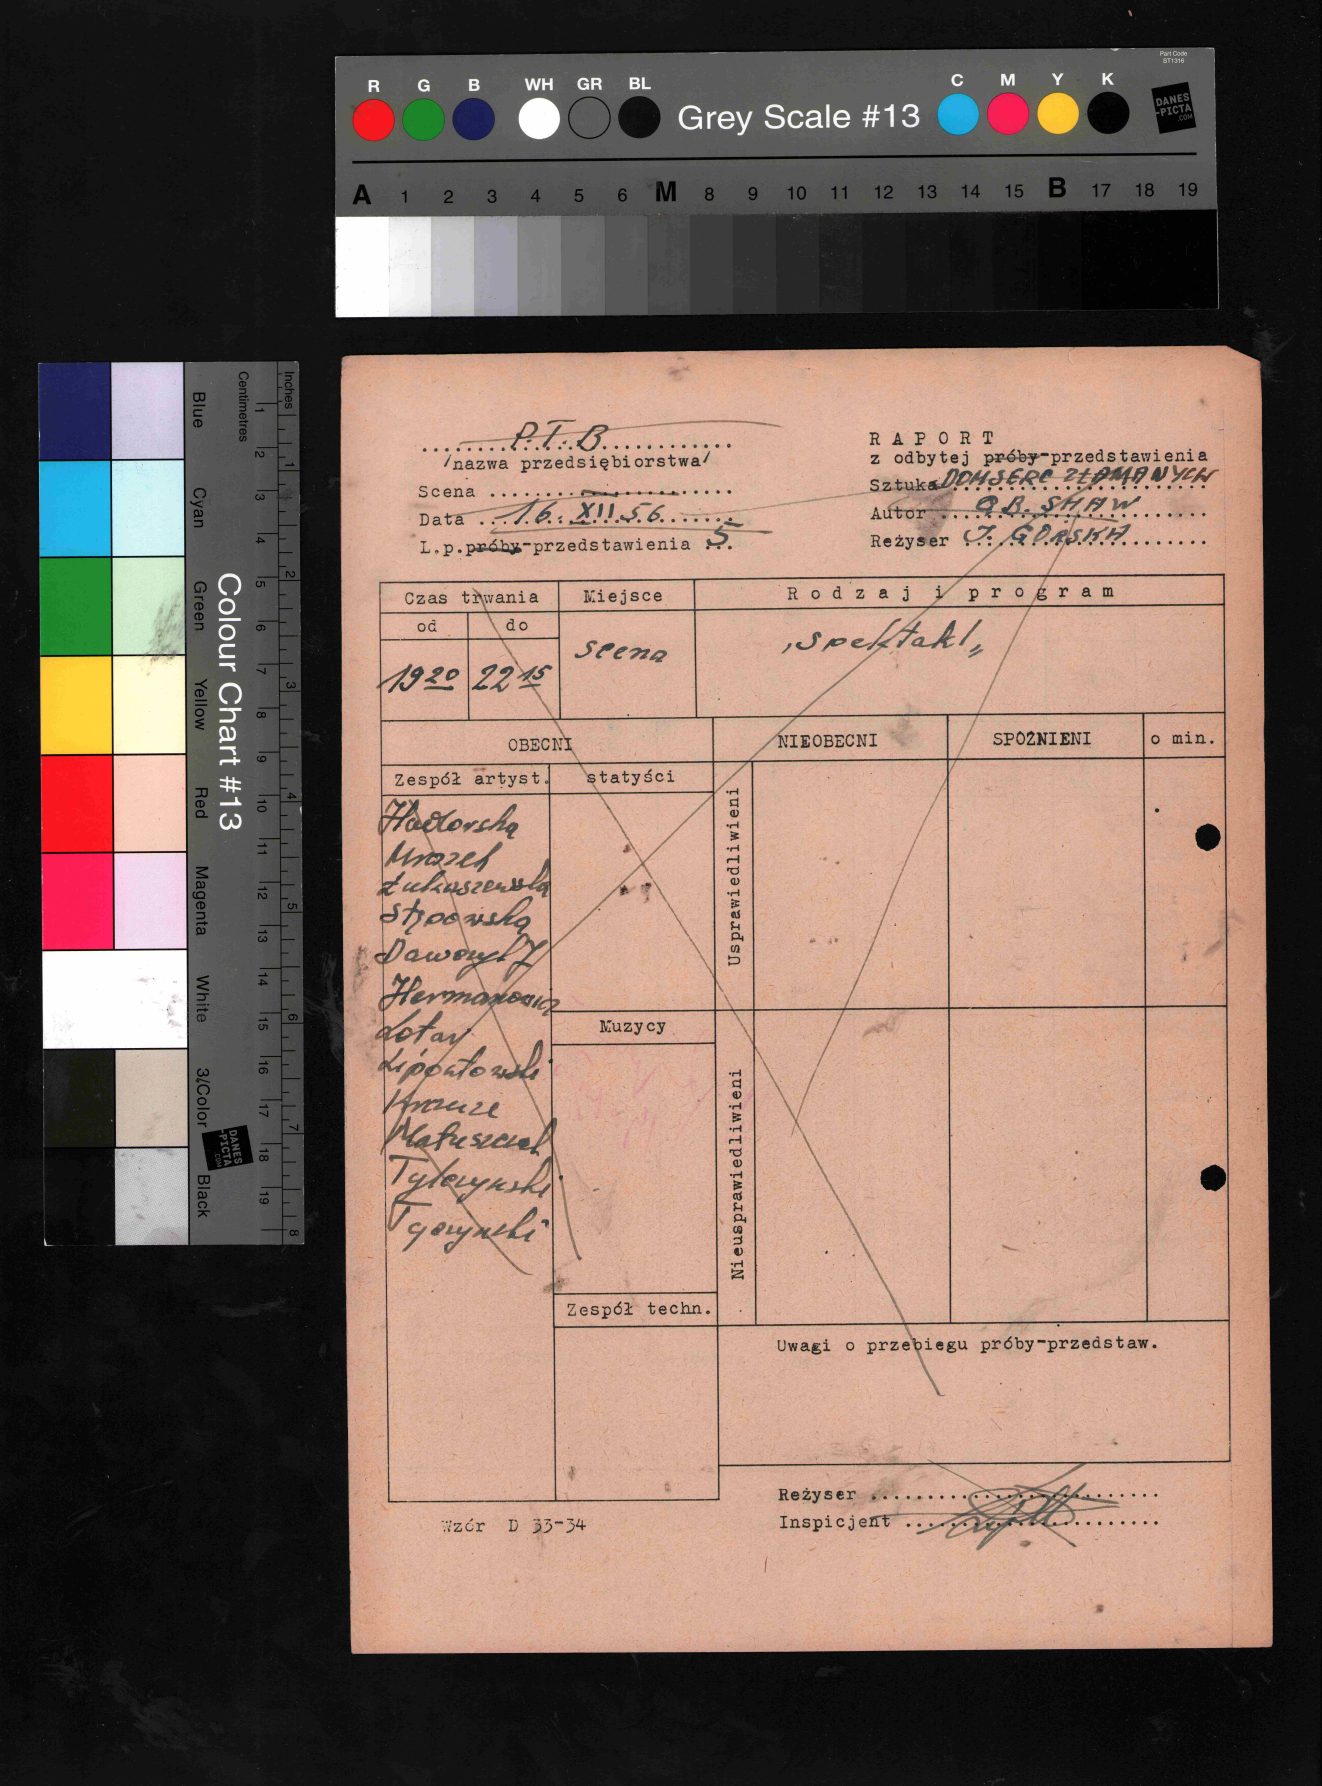 Part Code
ST1316
R G B WH GR BL Grey Scale #13 C M Y K
DANES
-PICTA
.COM
A 1 2 3 4 5 6 M 8 9 10 11 12 13 14 15 B 17 18 19
Colour Chart #13
Blue Cyan Green Yellow Red Magenta White 3/Color Black
Centimetres 1 2 3 4 5 6 7 8 9 10 11 12 13 14 15 16 17 18 19
Inches 1 2 3 4 5 6 7 8
DANES
-PICTA
.COM
P.T.B
/nazwa przedsiębiorstwa/
Scena
Data 16. XII.56
L.p.próby-przedstawienia 5
RAPORT
z odbytej próby-przedstawienia
Sztuka DOM SERC ZŁAMANYCH
Autor G.B. SHAW
Reżyser I. GÓRSKA
Czas trwania Miejsce Rodzaj i program
od do
19 20 22 15 scena "spektakl"
OBECNI NIEOBECNI SPÓŹNIENI o min.
Zespół artyst. statyści
Usprawiedliwieni
Mrozek
Łukaszewska
Stępowska
Hermanowicz
Lotar
Krauze
Matuszczak
Tylczyński
Tyczyński
Muzycy
Nieusprawiedliwieni
Zespół techn.
Uwagi o przebiegu próby-przedstaw.
Reżyser
Inspicjent
Wzór D 33-34